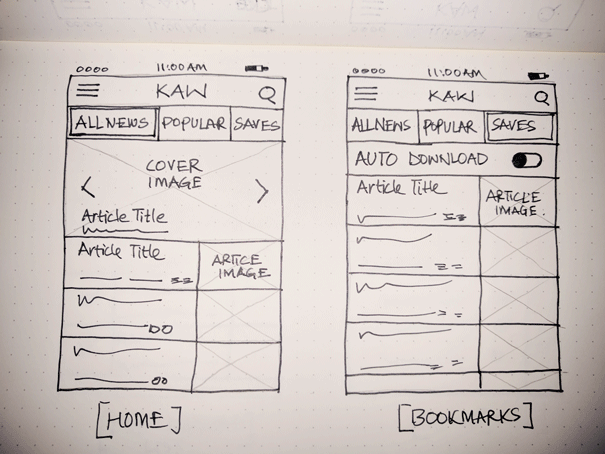 11:00AM
KAW
ALLNEWS POPULAR SAVES
COVER
IMAGE
Article Title
Article Title
ARTICE
IMAGE
[HOME]
11:00AM
KAW
ALLNEWS POPULAR SAVES
AUTO DOWNLOAD
Article Title
ARTICLE
IMAGE.
[BOOKMARKS]